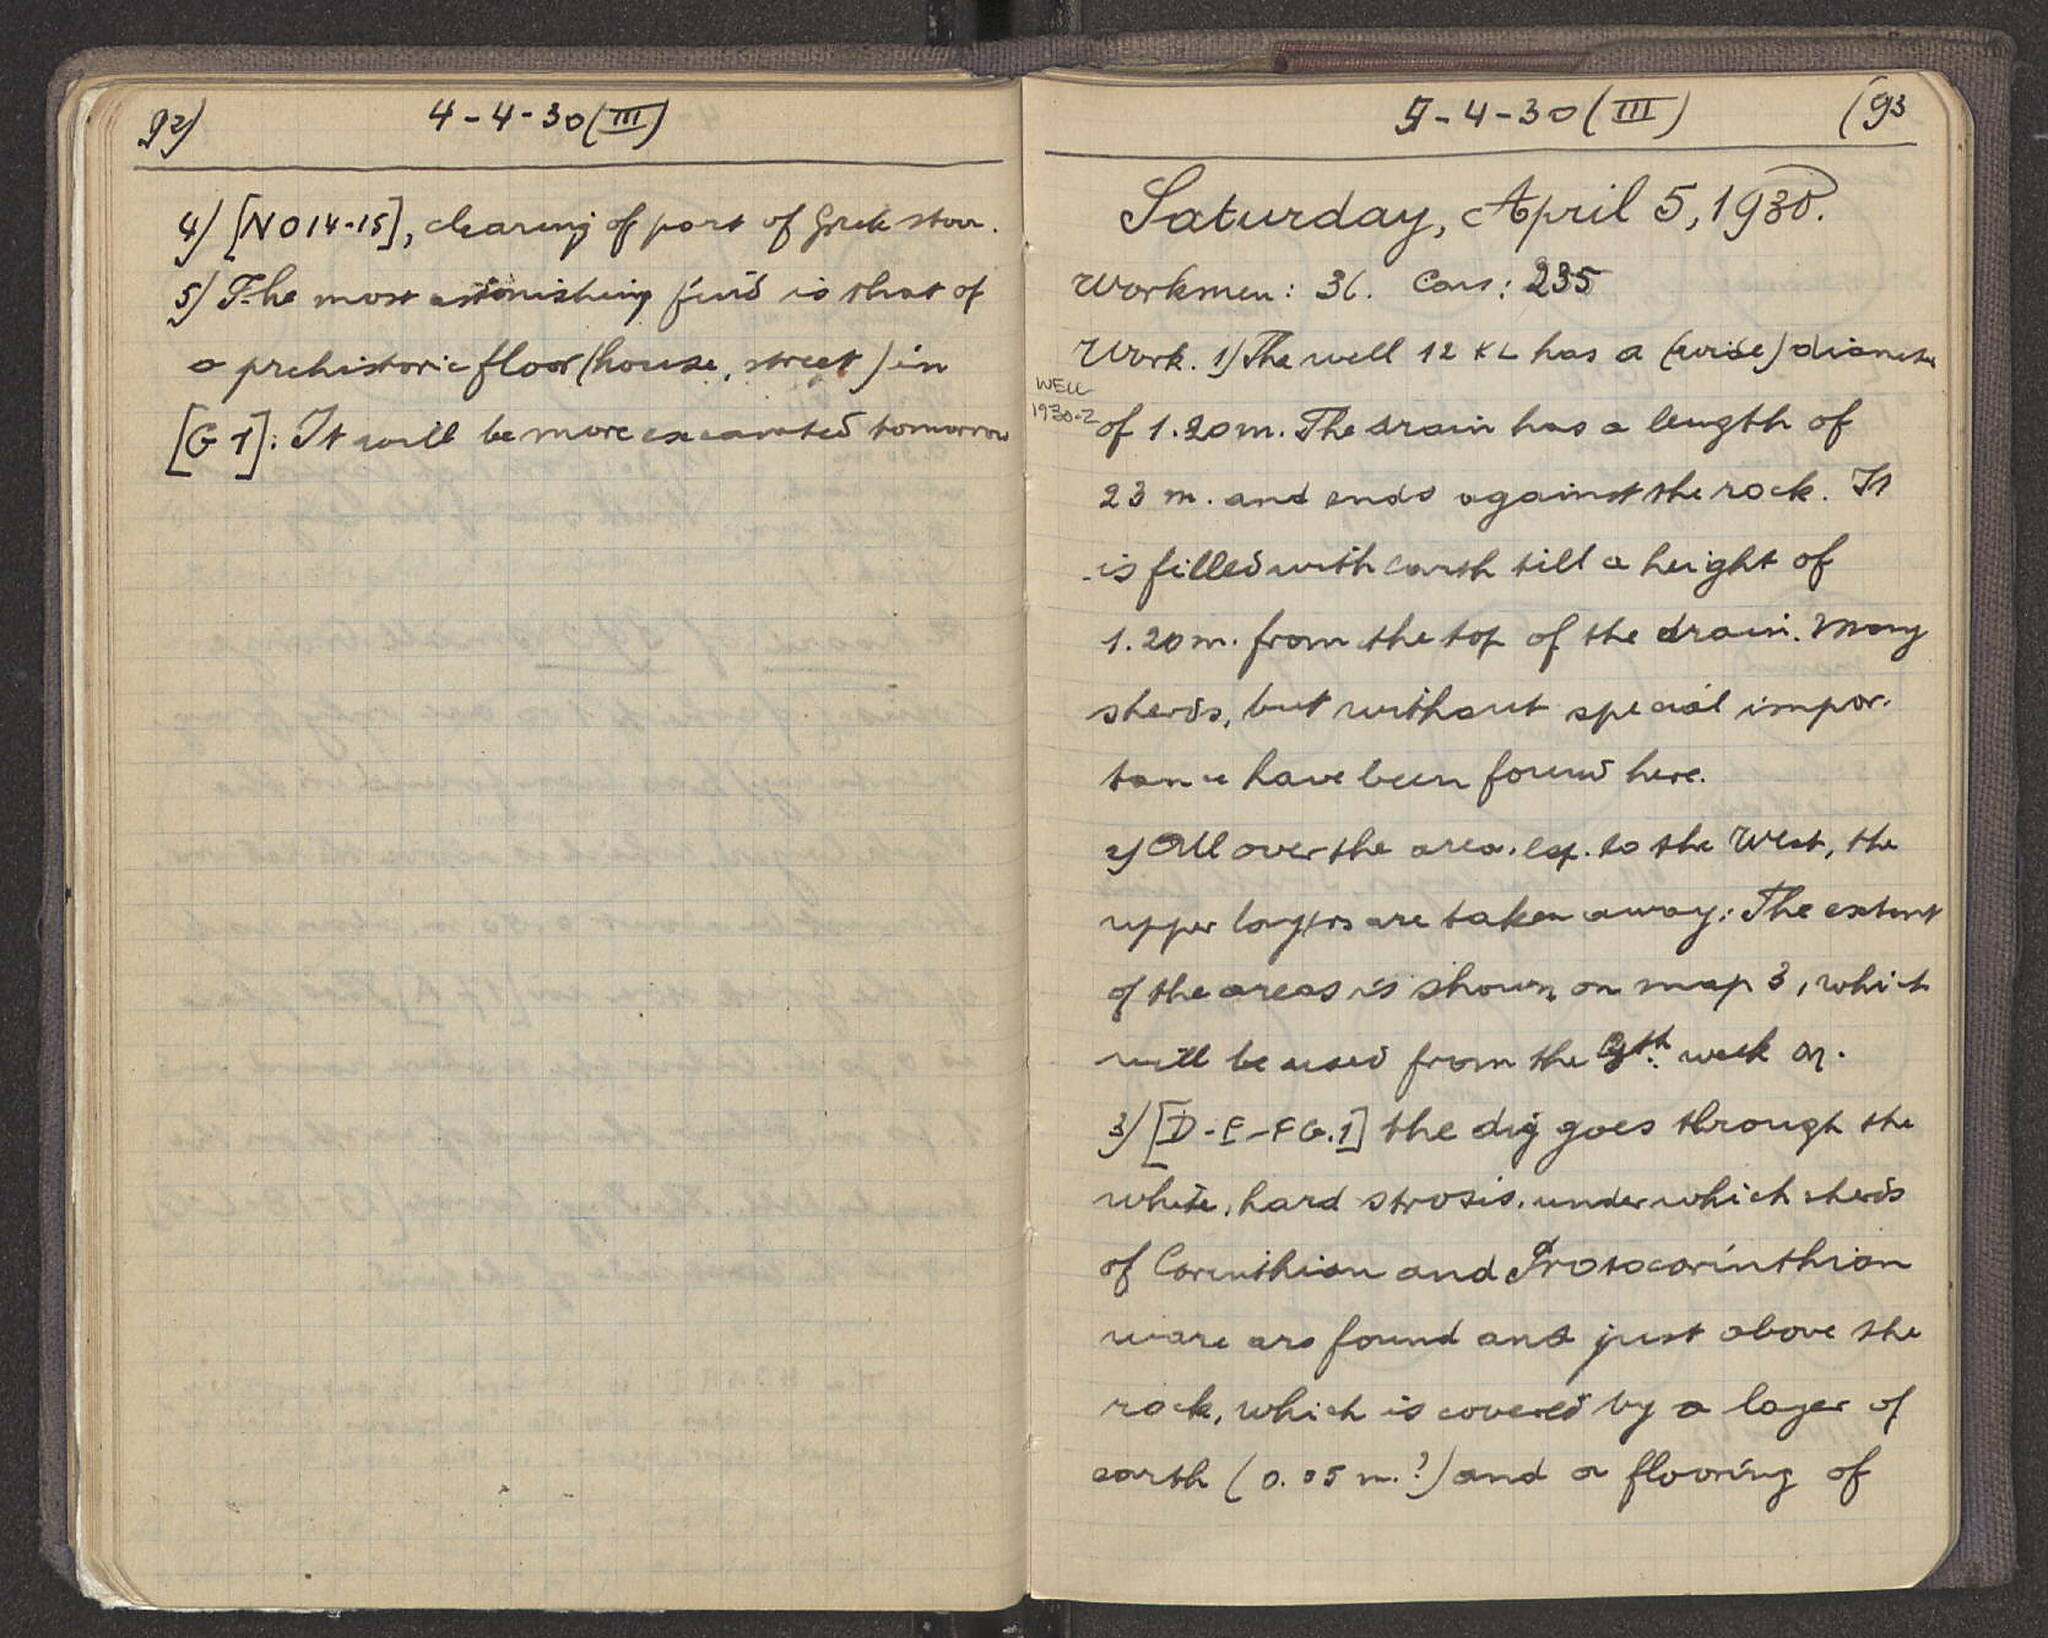 92)
4-4-30 (III)
4) [NO14-15], clearing of part of Greek stoa.
5) The most astonishing find is that of
a prehistoric floor (house, street) in
[G 1]: It will be more excavated tomorrow
5-4-30 (III)
(93
Saturday, April 5, 1930.
Workmen: 36. Cars: 235
Work. 1) The well 12 KL has a (wide) diameter
WELL
1930-2
of 1.20m. The drain has a length of
23 m. and ends against the rock. It
is filled with earth till a height of
1.20 m. from the top of the drain. Many
sherds, but without special impor-
tance have been found here.
2) All over the area, esp. to the West, the
upper layers are taken away: The extent
of the areas is shown on map 3, which
will be used from the week on.
3) [D-E-FG.1] the dig goes through the
white, hard strosis, under which sherds
of Corinthian and Protocorinthian
ware are found and just above the
rock, which is covered by a layer of
earth (0.05 m.?) and a flooring of